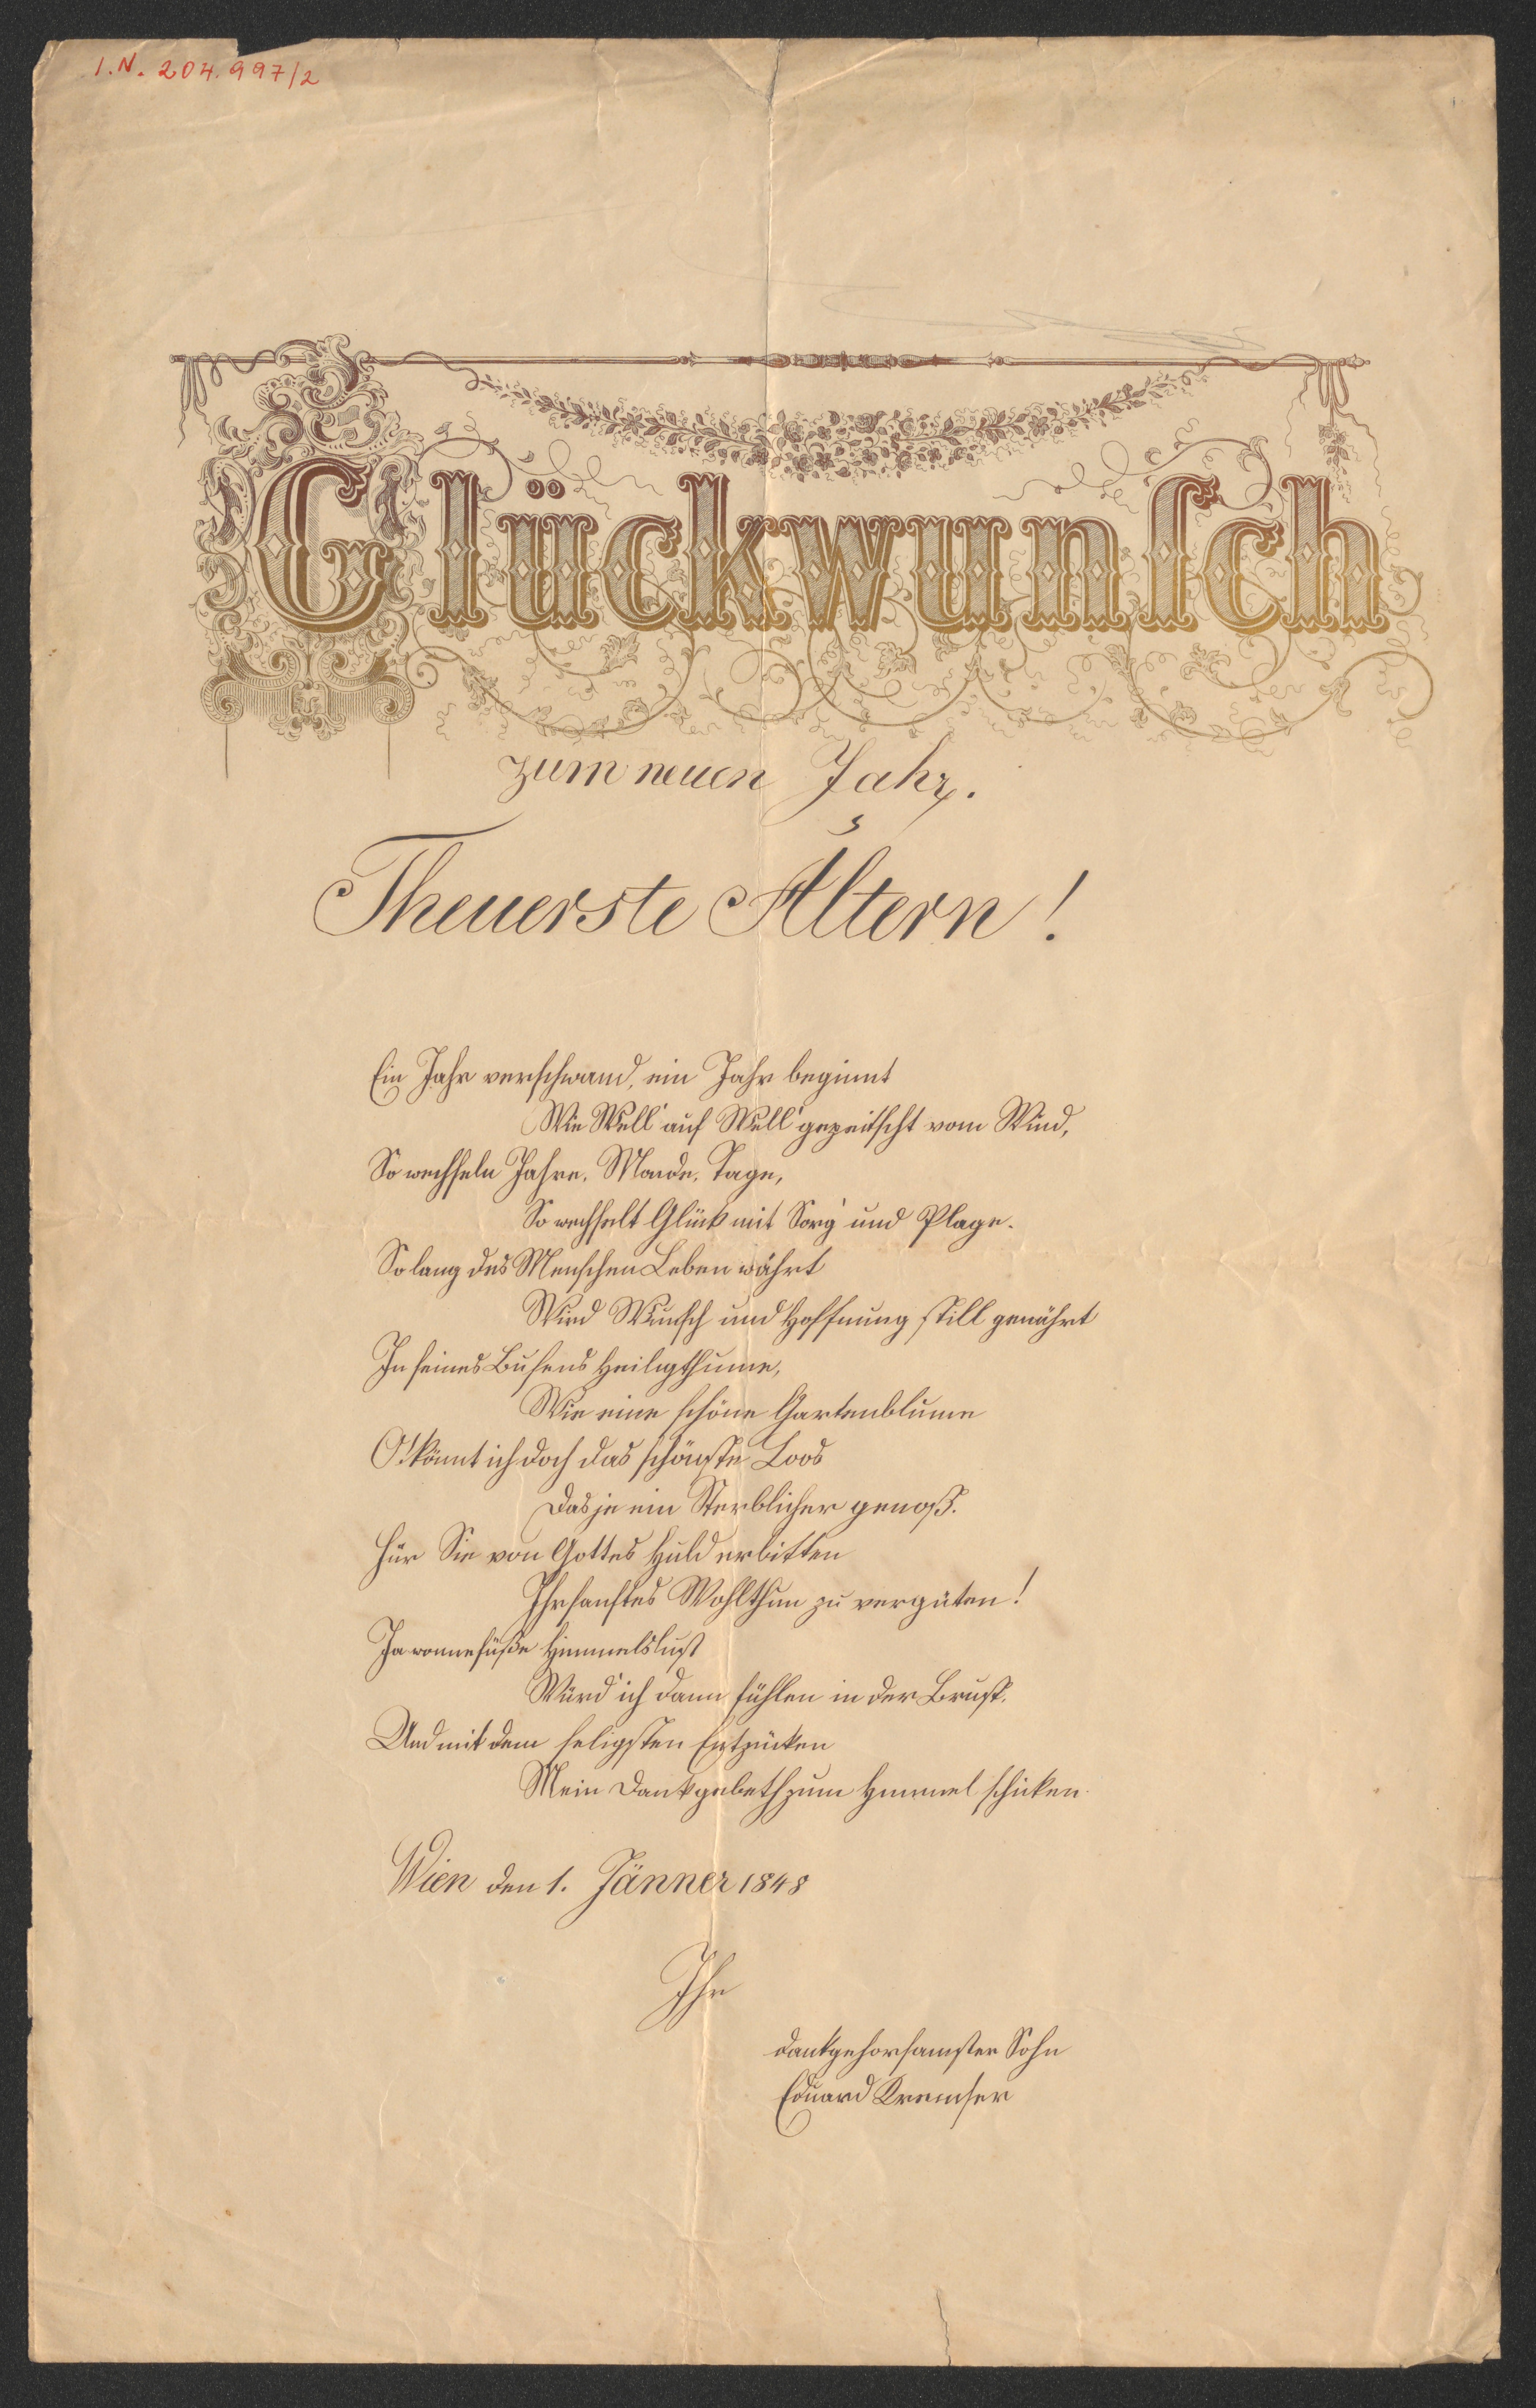 I.N. 204.997/2
Glückwunſch
zum neuen Jahr.
Theuerste Ältern!
Ein Jahr verschwand, ein Jahr beginnt
Wie Well' auf Well' gepeitscht vom Wind,
So wechseln Jahre, Monde, Tage,
So wechselt Glück mit Sorg' und Plage.
So lang des Menschen Leben währt
Wird Wunsch und Hoffnung still genährt
In seines Busens Heiligthume,
Wie eine schöne Gartenblume
O! könnt ich doch das schönste Loos
Das je ein Sterblicher genoß.
Für Sie von Gottes Huld erbitten
Ihr sanftes Wohlthun zu vergüten!
Ja wonnesüße Himmelslust
Würd' ich dann fühlen in der Brust.
Und mit dem seligsten Entzücken
Mein Dankgebeth zum Himmel schicken.
Wien den 1. Jänner 1848
Ihr
dankgehorsamster Sohn
Eduard Kremser